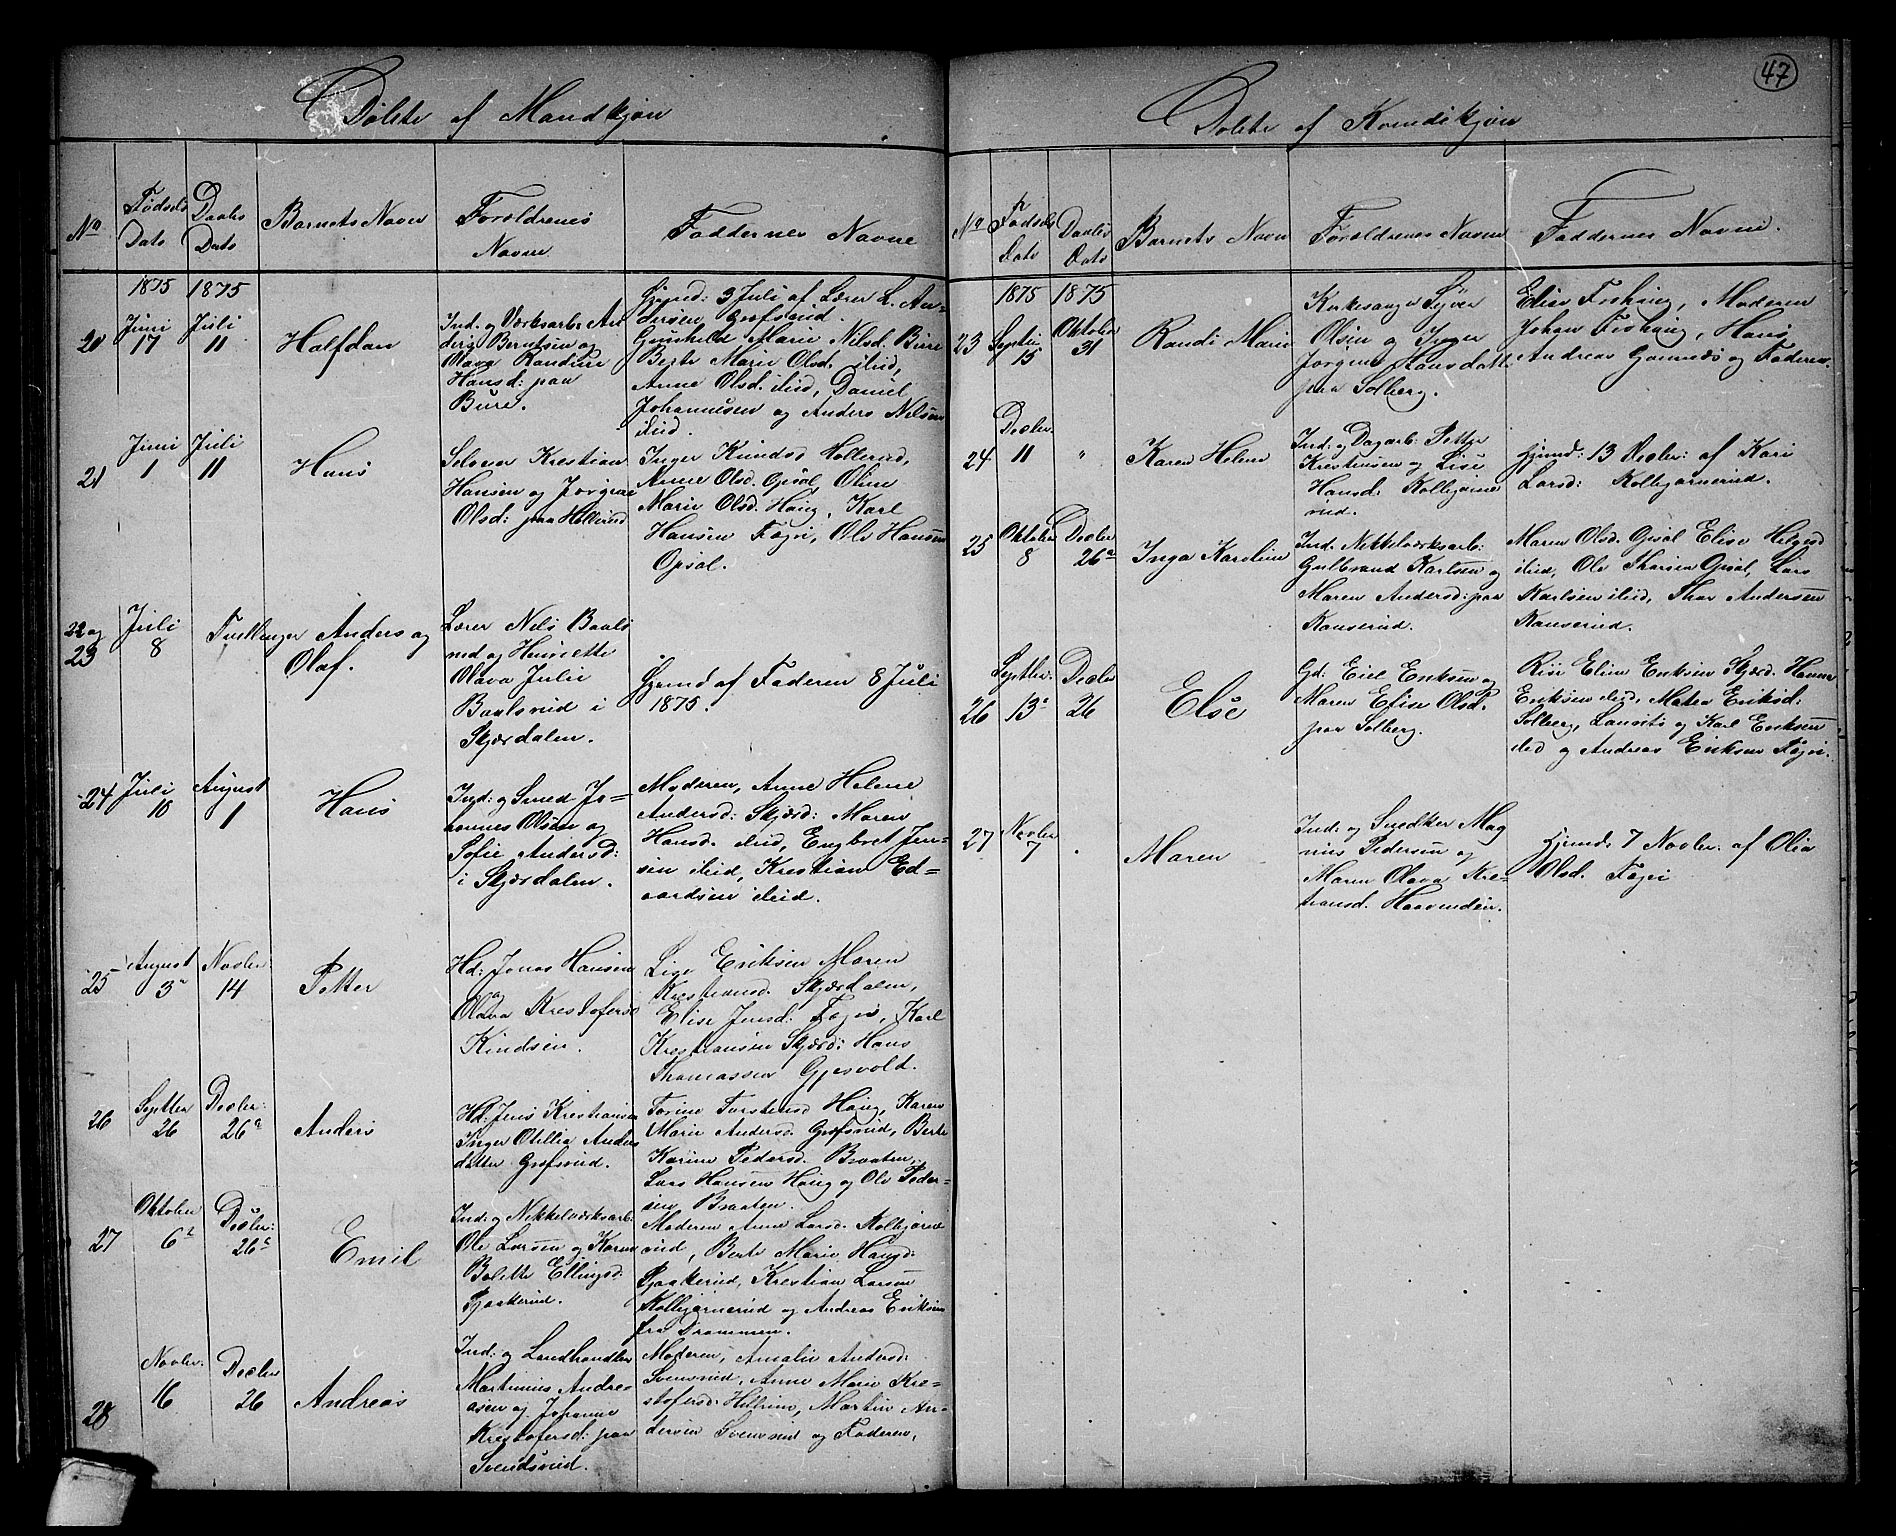 47
Døbte af Mandkjøn
No
Fødsels Dato
Daabs Dato
Barnets Navn
Forældrenes Navne
Faddernes Navne
1875 1875
20
Juni 17
Juli 11
Halfdan
Ind: og Værksarb: An
ders Berntsen og
Olava Randine
Hansd: paa
Bure.
Hjemd: 3 Juli af Lærer L. An-
dersen Grøfsrud.
Gunhild Marie Nilsd. Bure
Berte Marie Olsd. ibid,
Anne Olsd. ibid, Daniel
Johannesen og Anders Nilsen
ibid.
21
Juni 1
Juli 11
Hans
Selveier Kristian
Hansen og Jørgine
Olsd: paa Hollerud
Inger Knudsd Hollerud,
Anne Olsd. Opsal, Oline
Marie Olsd. Haug, Karl
Hansen Fagri, Ole Hansen
Opsal.
22 og 23
Juli 8
Tvillinger Anders og
Olaf.
Lærer Nils Baals
rud og Henriette
Olava Julie
Baalsrud i
Skjærdalen.
Hjemd af Faderen 8 Juli
1875.
24
Juli 10
August 1
Hans
Ind: og Smed Jo-
hannes Olsen og
Sofie Andersd:
i Skjærdalen.
Moderen, Anne Helene
Andersd: Skjærd: Maren
Hansd. ibid, Engbret Jen-
sen ibid, Kristian Ed-
vardsen ibid.
25
August 3
Novber 14
Petter
Hd: Jonas Hansen
og
Olava Kristofersd
Lise Eriksen Maren
Kristiansd. Skjærdalen,
Elise Jensd: Fagri, Karl
Kristiansen Skjærd: Hans
Thomassen Gjesvold.
26
Septber 26
Decber: 26
Anders
Hd: Jens Kristiansen
Inger Otillia Anders
datter Grøfsrud.
Torine Torstensd Haug, Karen
Marie Andersd. Grøfsrud, Berte
Karine Pedersd. Braaten,
Lars Hansen Haug og Ole Peder-
sen Braaten.
27
Oktober 6
Decber: 26
Emil
Ind: og Nikkelværksarb:
Ole Larsen og Karen
Bolette Ellingsd:
Pjaakerud.
Moderen Anne Larsd. Kolbjørne
rud, Berte Marie Hansd:
Pjaakerud, Kristian Larsen
Kolbjørnerud og Andreas Eriksen
fra Drammen.
28
Novber. 16
Decber 26
Andreas
Ind: og Landhandler
Martinius Andre
asen og Johanne
Kristofersd: paa
Svendsrud.
Moderen, Amalie Andersd:
Svensrud, Anne Marie Kri-
stofersd: Martin An-
dersen Svensrud og Faderen,
Døbte af Kvindekjøn
No
Fødsels Dato
Daabs Dato
Barnets Navn
Forældrenes Navne
Faddernes Navne.
1875 1875
23
Septbr 15
Oktober 31
Randi Marie
Kirkesanger Syver
Olsen og Inger
Jørgine Hansdatt.
paa Solberg.
Elise Frohaug, Moderen
Johan Frohaug, Hans
Andreas Gomnæs og Faderen.
24
Decbr. 11
"
Karen Helene
Ind: og Dagarb: Petter
Kristensen og Lise
Hansd: Kolbjørne
rud.
Hjemd: 13 Decbr: af Kari
Larsd: Kolbjørnerud.
25
Oktober 8
Decber 26
Inga Karoline
Ind: Nikkelværksarb:
Gulbrand Karlsen og
Maren Andersd: paa
Kanserud.
Maren Olsd. Opsal Elise Helgesd
ibid, Ole Thorsen Opsal, Lars
Karlsen ibid, Thor Andersen
Kanserud.
26
Septbr. 13
Decbr 26
Else
Gd: Eriksen og
Maren Elise Olsd.
paa Solberg.
Elise Eriksen Skjærd. Hanna
Eriksen ibid, Matea Eriksd:
Solberg, Lauritz og Karl Eriksen
ibid og Andreas Eriksen Fagri.
27
Novber 7
.
Maren
Ind: og Snedker Mag
nus Pedersen og
Maren Olava Kri-
stiansd.
Hjemd. 7 Novbr: af Olia
Olsd. Fagri